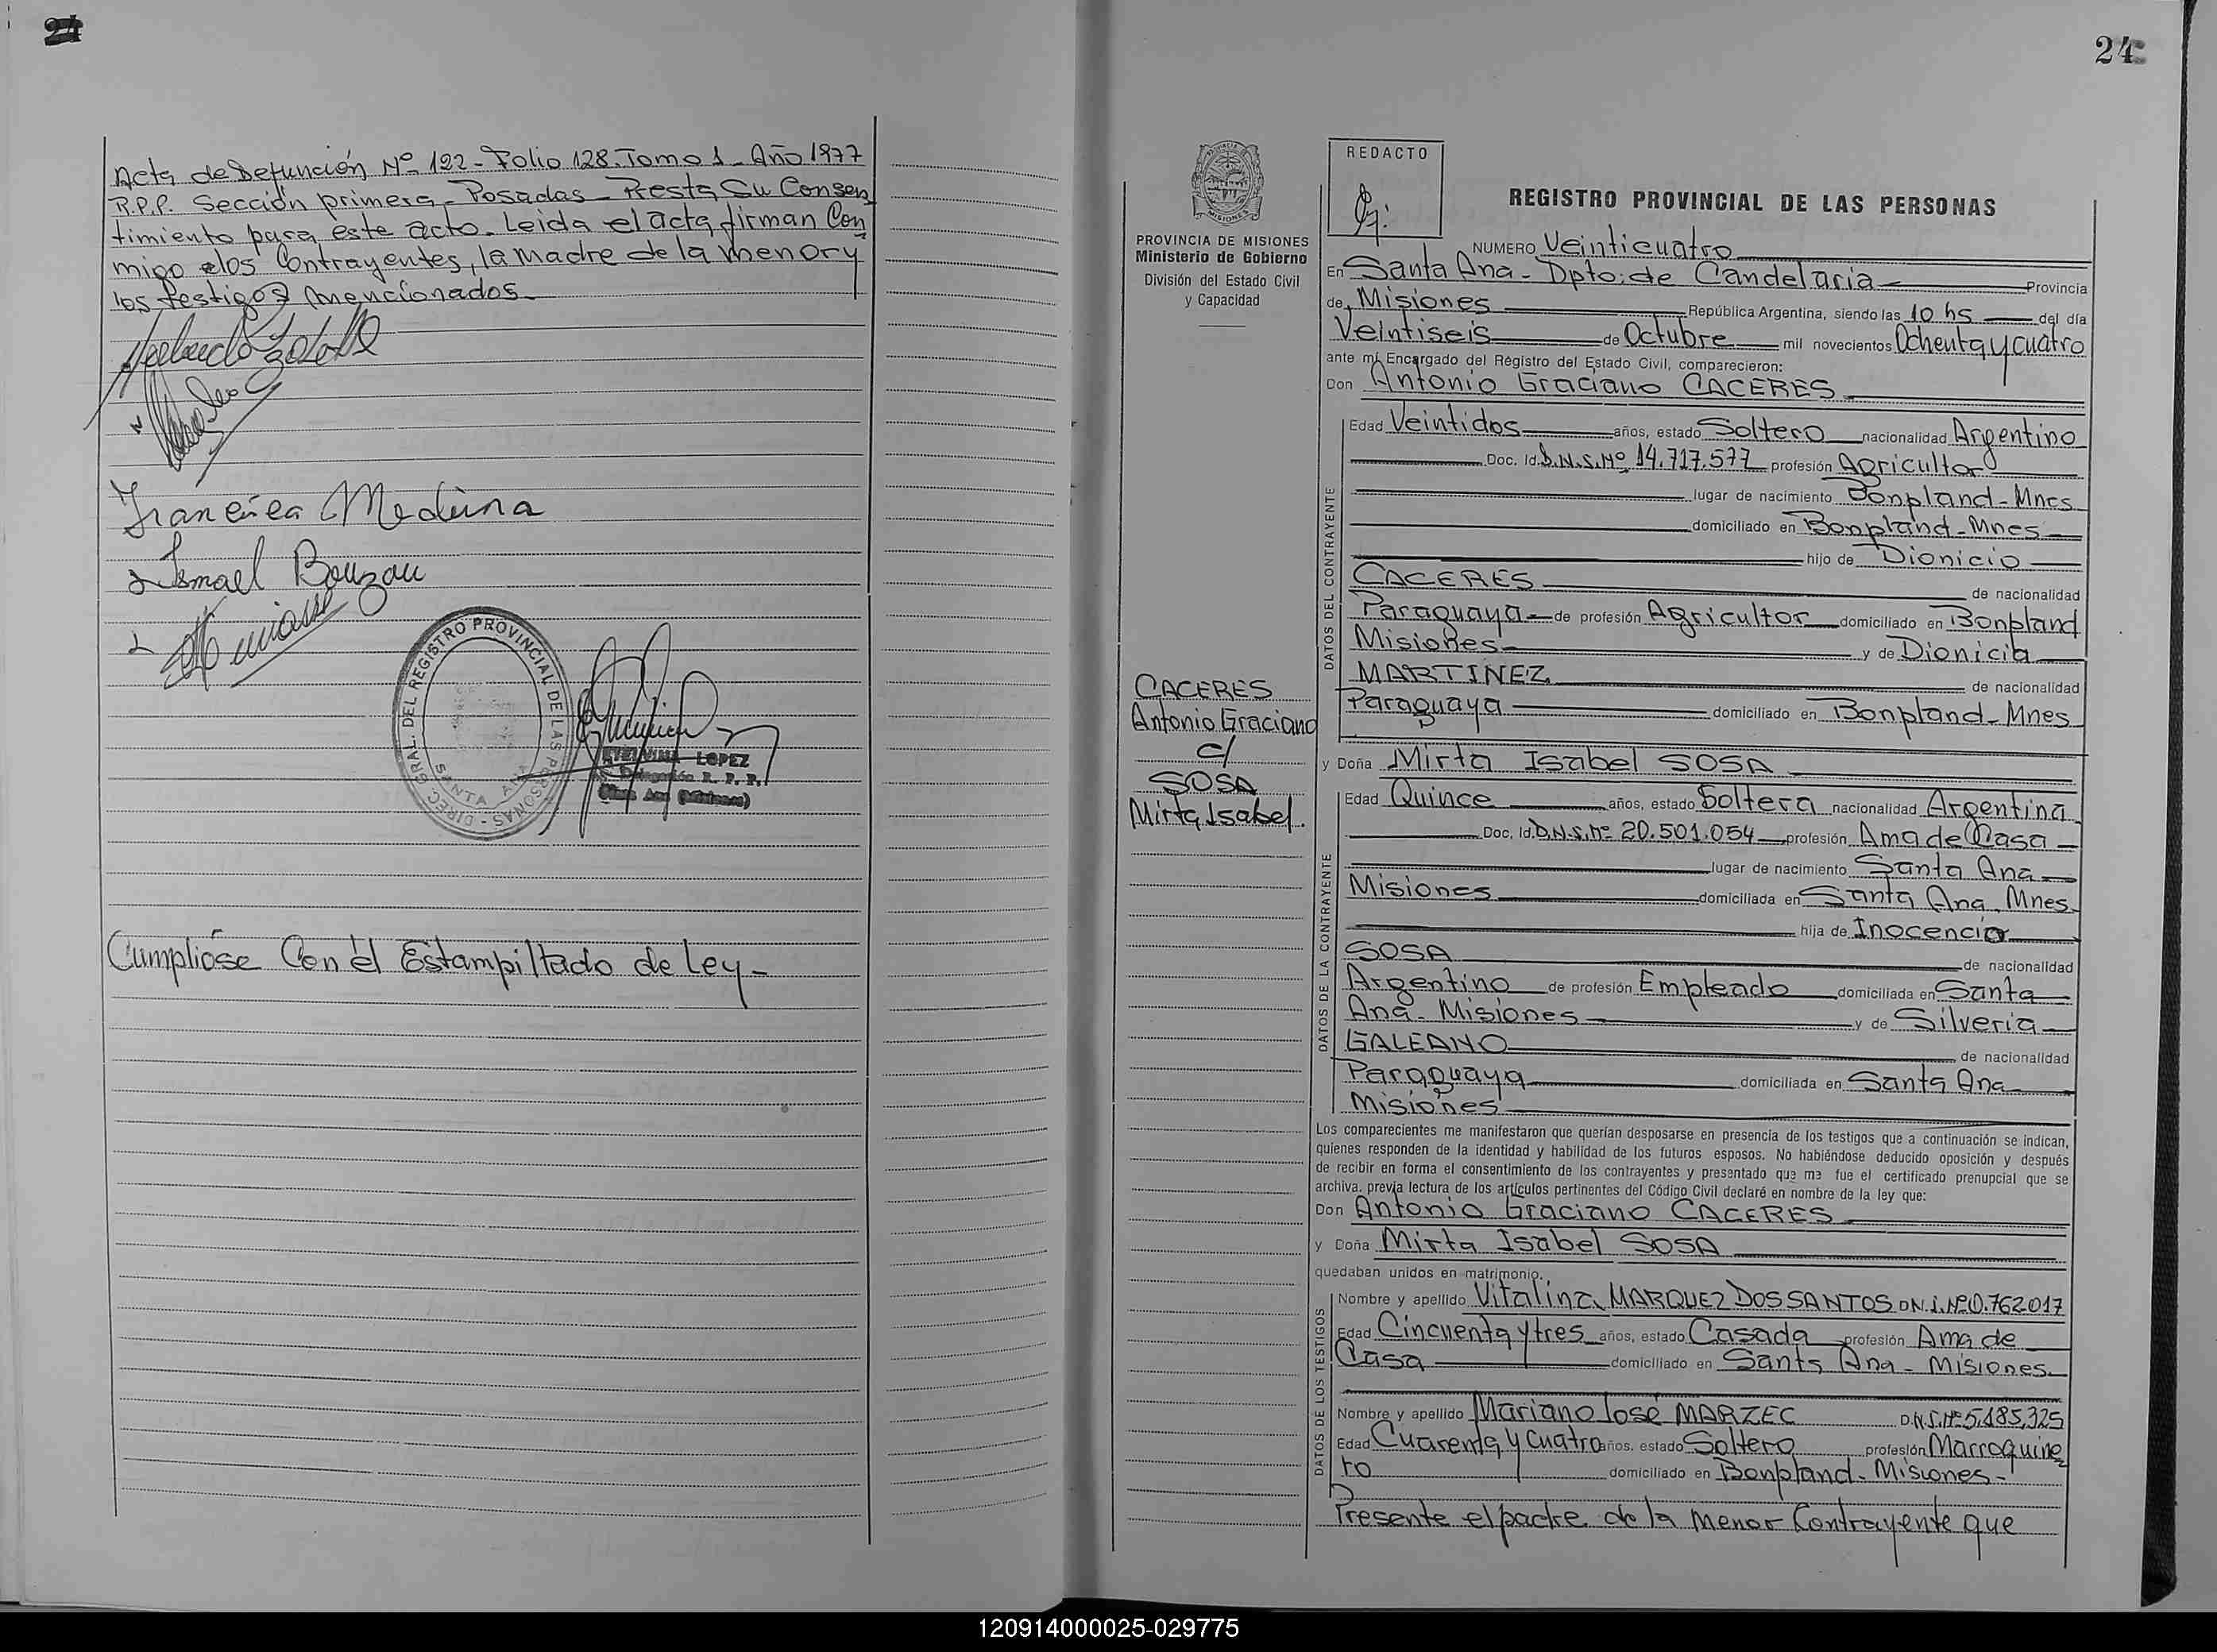 24
Acta de Defunción Nº 122 - Folio 128. Tomo 1 - Año 1977
R.P.P. Sección primera - Posadas - Presta Su Consen
timiento para este acto. Leida el acta firman Con
migo los Contrayentes, la madre de la menor y
los testigos mencionados
Francisca Medina
Ismael Bouzou
DIREC. GRAL. DEL REGISTRO PROVINCIAL DE LAS PERSONAS -
SANTA ANA
LOPEZ
Delegación R. P. P.
Santa Ana (Misiones)
Cumpliose Con el Estampillado de Ley -
24
PROVINCIA DE MISIONES
Ministerio de Gobierno
División del Estado Civil
y Capacidad
CACERES
Antonio Graciano
c/
SOSA
Mirta Isabel.
REDACTO
REGISTRO PROVINCIAL DE LAS PERSONAS
NUMERO Veinticuatro
En Santa Ana - Dpto: de Candelaria Provincia
de Misiones República Argentina, siendo las 10 hs del día
Veintiseis de Octubre mil novecientos Ochenta y cuatro
ante mí Encargado del Registro del Estado Civil, comparecieron:
Don Antonio Graciano CACERES
DATOS DEL CONTRAYENTE
Edad Veintidos años, estado Soltero nacionalidad Argentino
Doc. Id. D.N.I. Nº 14.717.577 profesión Agricultor
lugar de nacimiento Bonpland - Mnes
domiciliado en Bonpland - Mnes
hijo de Dionicio
CACERES de nacionalidad
Paraguaya de profesión Agricultor domiciliado en Bonpland
Misiones y de Dionicia
MARTINEZ de nacionalidad
Paraguaya domiciliado en Bonpland - Mnes
y Doña Mirta Isabel SOSA
DATOS DE LA CONTRAYENTE
Edad Quince años, estado Soltera nacionalidad Argentina
Doc. Id. D.N.I. Nº 20.501.054 profesión Ama de Casa
lugar de nacimiento Santa Ana
Misiones domiciliada en Santa Ana Mnes
hija de Inocencio
SOSA de nacionalidad
Argentino de profesión Empleado domiciliada en Santa
Ana - Misiones y de Silveria
GALEANO de nacionalidad
Paraguaya domiciliada en Santa Ana
Misiones
Los comparecientes me manifestaron que querían desposarse en presencia de los testigos que a continuación se indican,
quienes responden de la identidad y habilidad de los futuros esposos. No habiéndose deducido oposición y después
de recibir en forma el consentimiento de los contrayentes y presentado que me fue el certificado prenupcial que se
archiva, previa lectura de los artículos pertinentes del Código Civil declaré en nombre de la ley que:
Don Antonio Graciano CACERES
y Doña Mirta Isabel SOSA
quedaban unidos en matrimonio.
DATOS DE LOS TESTIGOS
Nombre y apellido Vitalina MARQUEZ DOS SANTOS D.N.I. Nº 0.762.017
Edad Cincuenta y tres años, estado Casada profesión Ama de
Casa domiciliado en Santa Ana - Misiones
Nombre y apellido Mariano José MARZEC D.N.I. Nº 5.185.325
Edad Cuarenta y Cuatro años, estado Soltero profesión Marroquine
ro domiciliado en Bonpland - Misiones -
Presente el padre de la menor Contrayente que
120914000025-029775